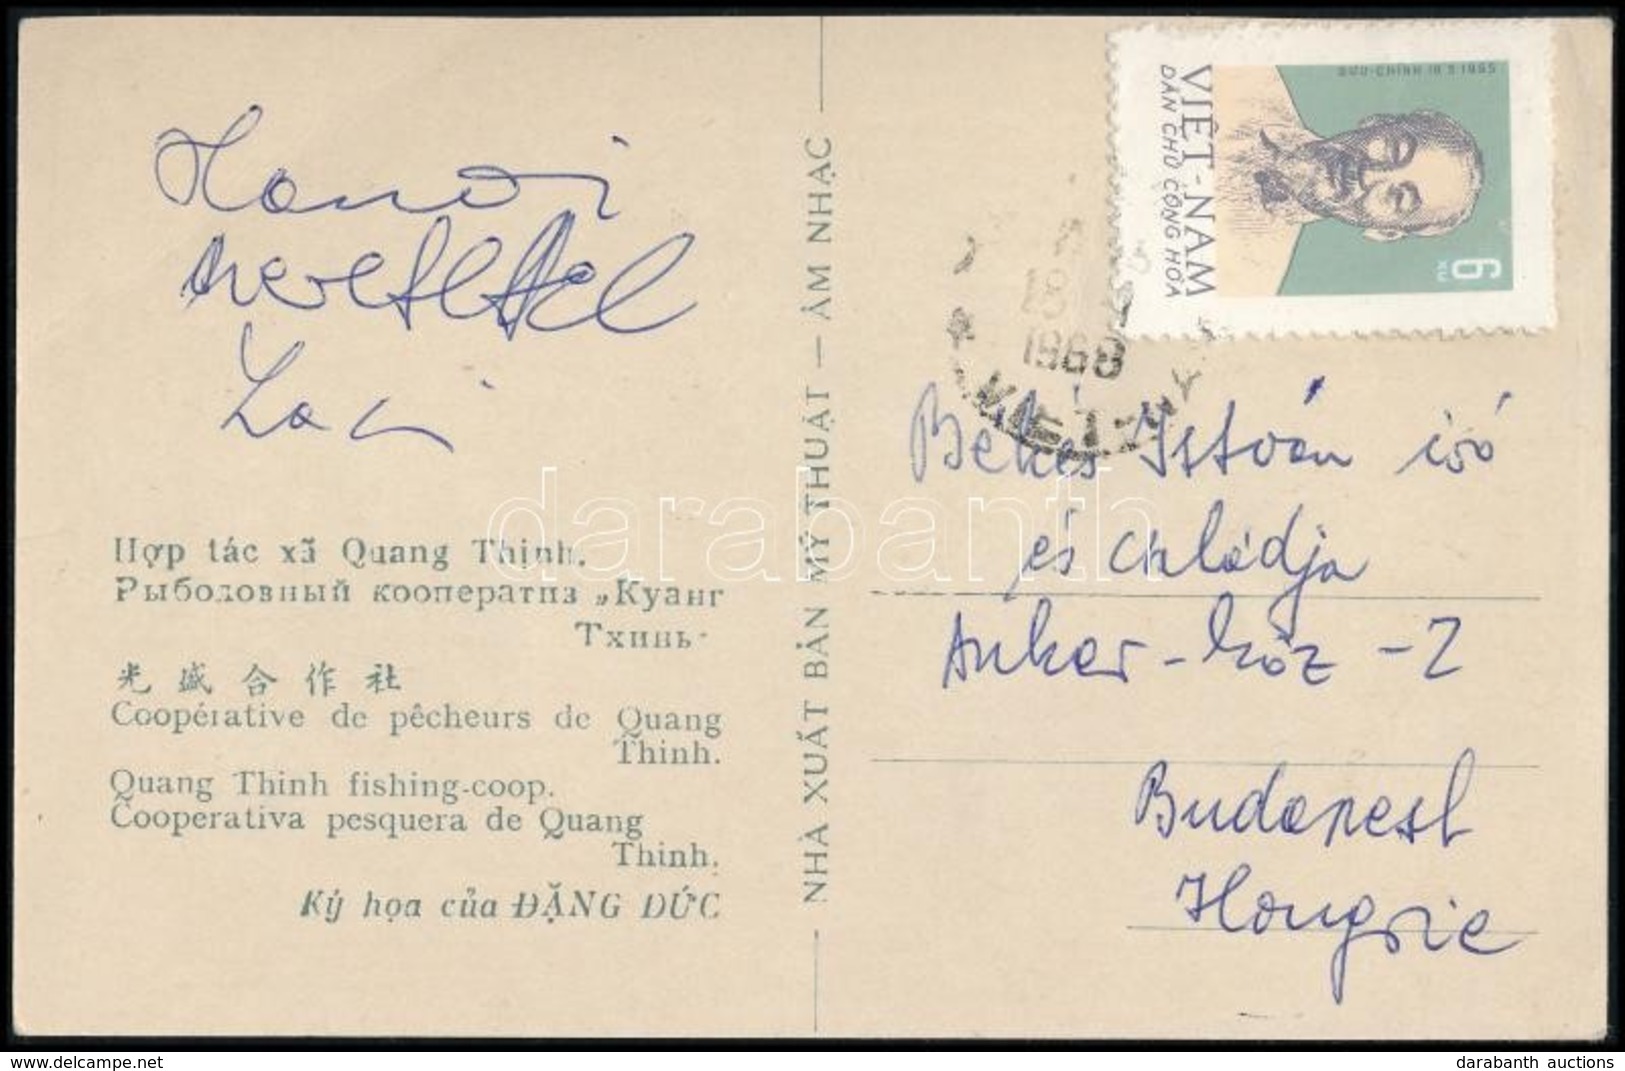 Hanoi
szeretettel
Laci
Hợp tác xã Quang Thịnh.
Рыболовный кооператив „Куанг
Тхинь"
光盛合作社
Coopérative de pêcheurs de Quang
Thinh.
Quang Thinh fishing-coop.
Cooperativa pesquera de Quang
Thinh.
Ký họa của ĐẶNG ĐỨC
NHÀ XUẤT BẢN MỸ THUẬT — ÂM NHẠC
BƯU-CHÍNH 19 5 1965
VIỆT-NAM
DÂN CHỦ CỘNG HÒA
6 XU
1968
VIET
Békés István író
és családja
Anker-köz -2
Budapest
Hongrie
darabanth
www.delcampe.net
darabanth auctions